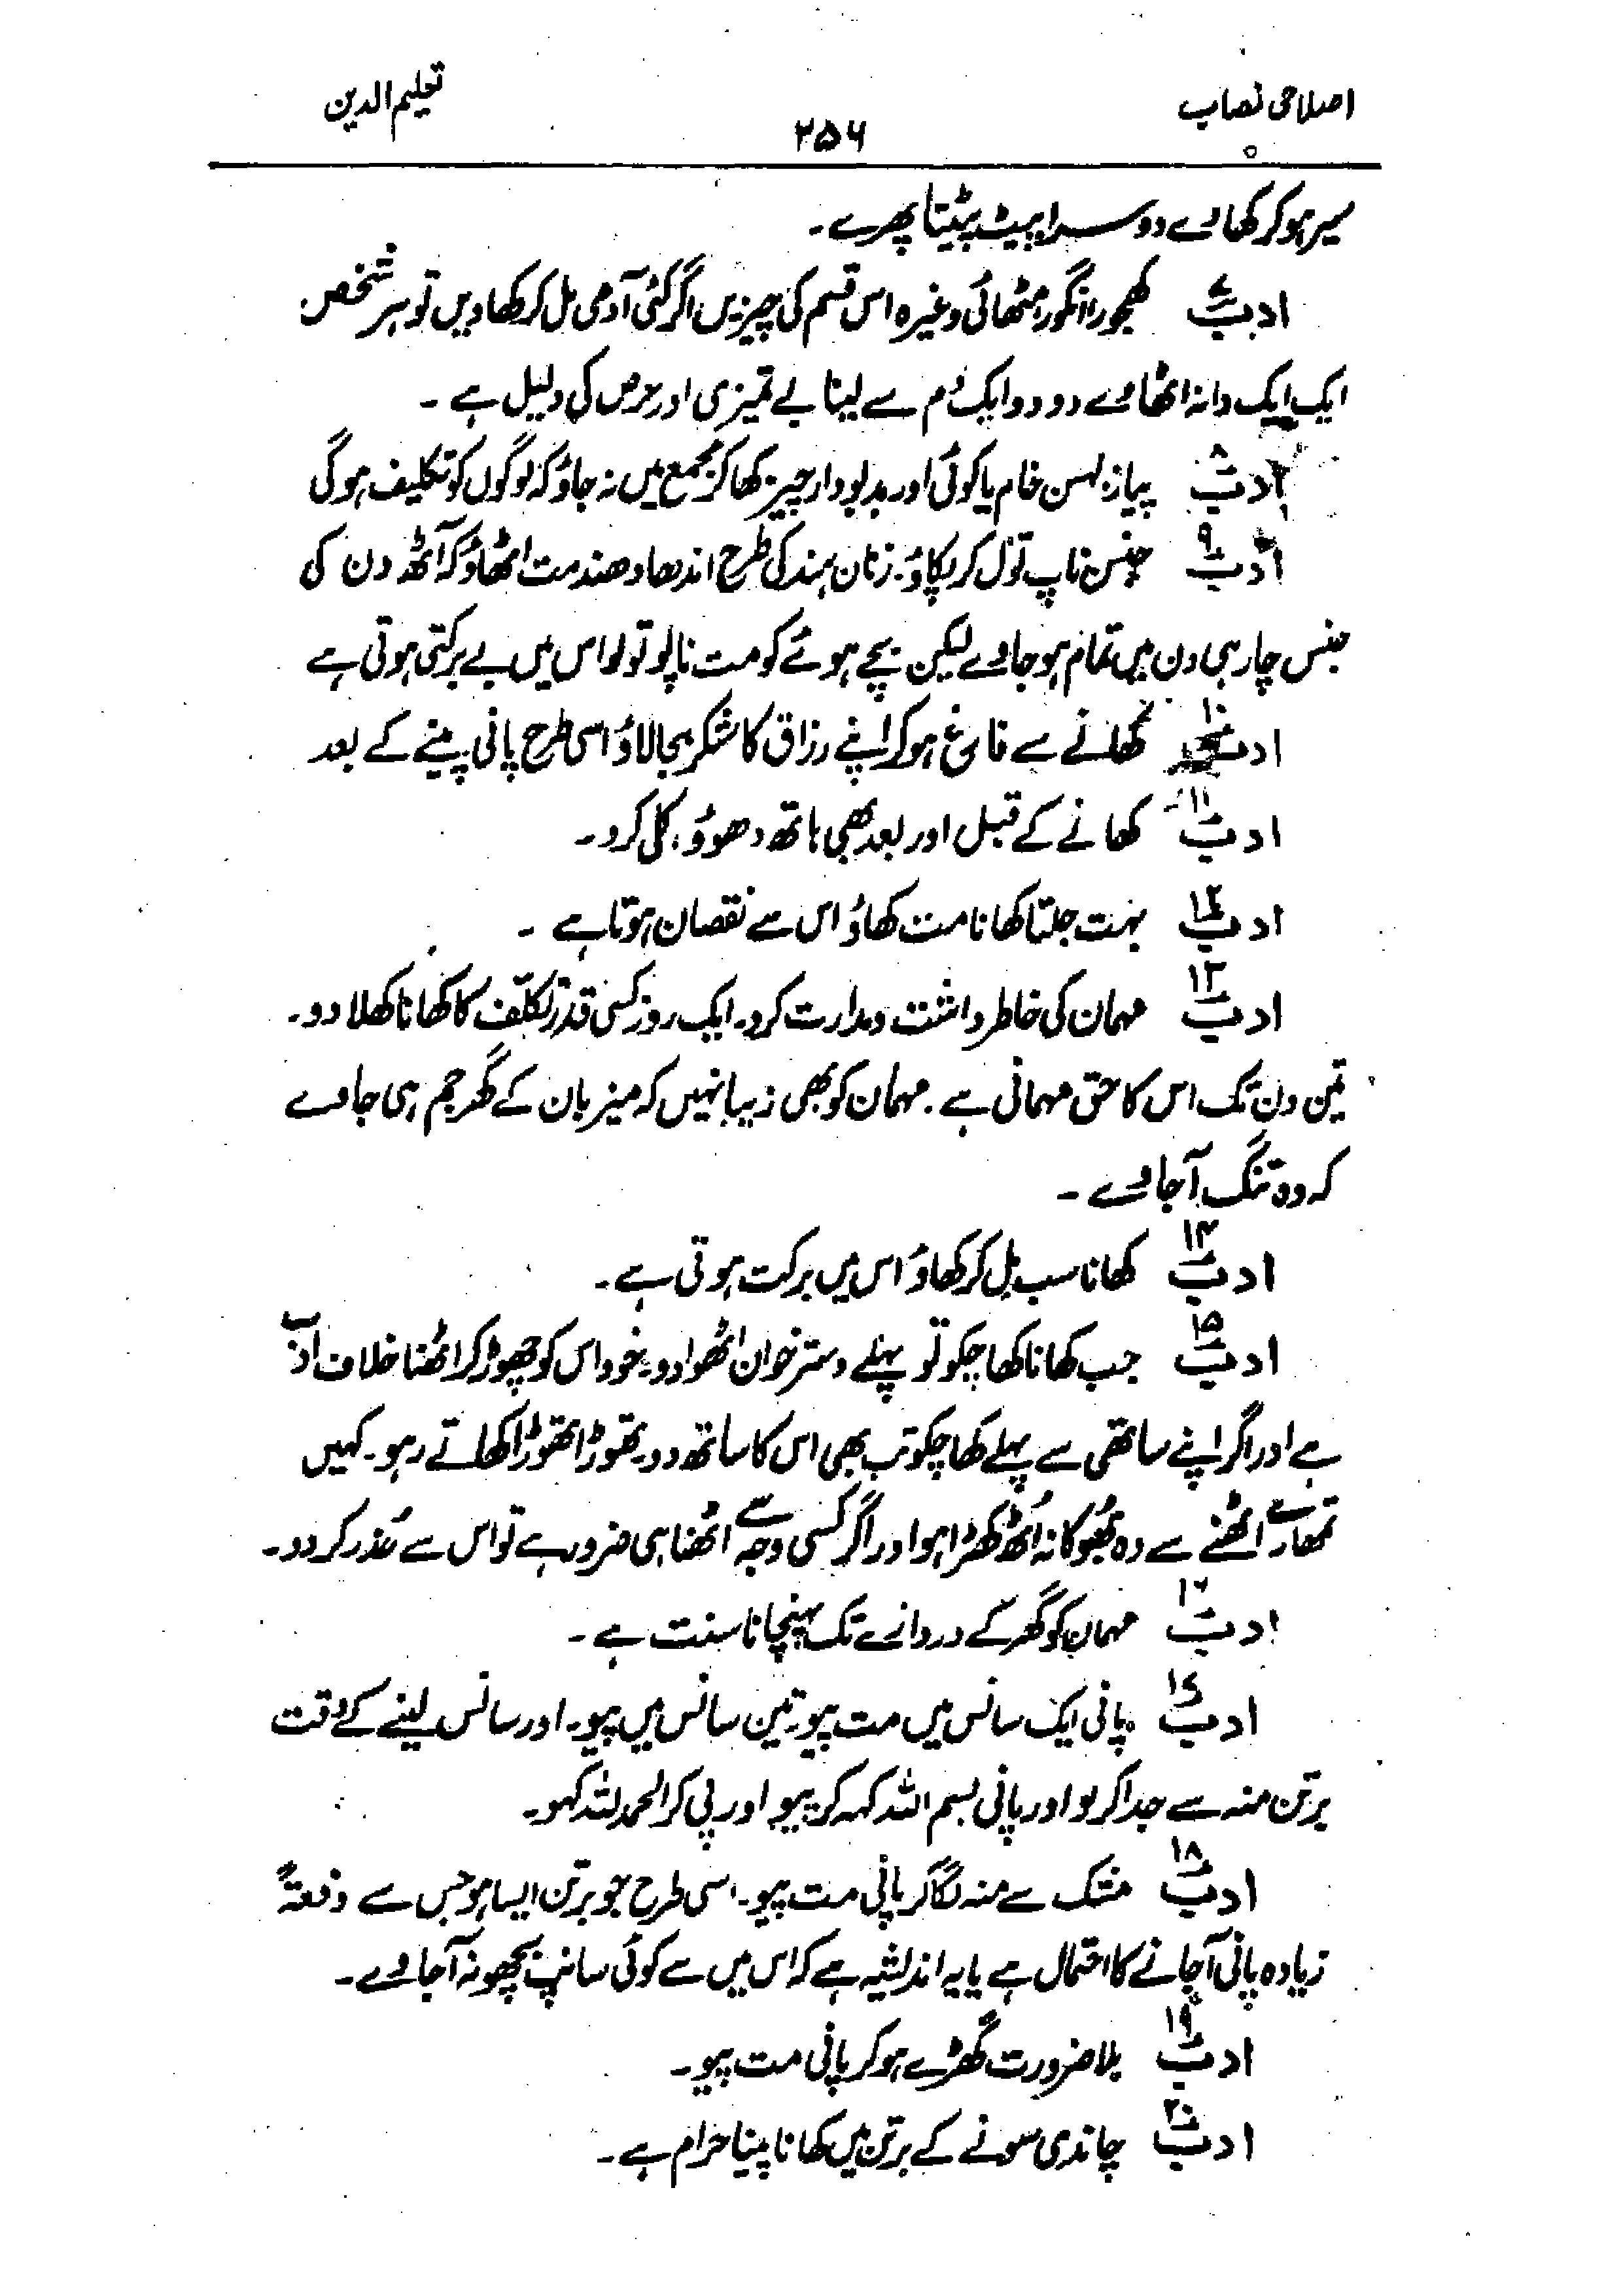 اصلاحی نصاب
۲۵۶
تعلیم الدین
سیر ہو کر کھاوے دوسرا پیٹ پیٹتا پھرے۔
ادب ۷ کھجور، انگور، مٹھائی وغیرہ اس قسم کی چیزیں اگر کئی آدمی مل کر کھاویں تو ہر شخص
ایک ایک دانہ اٹھاوے دو دو ایک دم سے لینا بے تمیزی اور حرص کی دلیل ہے۔
ادب ۸ پیاز، لہسن خام یا کوئی اور بدبودار چیز کھا کر مجمع میں نہ جاؤ کہ لوگوں کو تکلیف ہوگی
ادب ۹ جنس ناپ تول کر پکاؤ۔ زنان ہند کی طرح اندھا دھند مت اٹھاؤ کہ آٹھ دن کی
جنس چار ہی دن میں تمام ہو جاوے لیکن بچے ہوئے کو مت ناپو تولو اس میں بے برکتی ہوتی ہے
ادب ۱۰ کھانے سے فارغ ہو کر اپنے رزاق کا شکر بجا لاؤ اسی طرح پانی پینے کے بعد
ادب ۱۱ کھانے کے قبل اور بعد بھی ہاتھ دھوؤ، کلی کرو۔
ادب ۱۲ بہت جلتا کھانا مت کھاؤ اس سے نقصان ہوتا ہے۔
ادب ۱۳ مہمان کی خاطر داشت و مدارت کرو۔ ایک روز کسی قدر تکلّف کا کھانا کھلا دو۔
تین دن تک اس کا حق مہمانی ہے۔ مہمان کو بھی زیبا نہیں کہ میزبان کے گھر جم ہی جاوے
کہ وہ تنگ آجاوے۔
ادب ۱۴ کھانا سب مل کر کھاؤ اس میں برکت ہوتی ہے۔
ادب ۱۵ جب کھانا کھا چکو تو پہلے دسترخوان اٹھوا دو۔ خود اس کو چھوڑ کر اٹھنا خلاف ادب
ہے اور اگر اپنے ساتھی سے پہلے کھا چکو تب بھی اس کا ساتھ دو۔ تھوڑا تھوڑا کھاتے رہو۔ کہیں
تمھارے اٹھنے سے وہ بھُوکا نہ اُٹھ کھڑا ہو اور اگر کسی وجہ سے اٹھنا ہی ضرور ہے تو اس سے عُذر کر دو۔
ادب ۱۶ مہمان کو گھر کے دروازے تک پہنچانا سنت ہے۔
ادب ۱۷ پانی ایک سانس میں مت پیو، تین سانس میں پیو۔ اور سانس لینے کے وقت
برتن منہ سے جدا کر لو اور پانی بسم اللہ کہہ کر پیو اور پی کر الحمد للہ کہو۔
ادب ۱۸ مشک سے منہ لگا کر پانی مت پیو۔ اسی طرح جو برتن ایسا ہو جس سے دفعۃً
زیادہ پانی آجانے کا احتمال ہے یا یہ اندیشہ ہے کہ اس میں سے کوئی سانپ بچھو نہ آجاوے۔
ادب ۱۹ بلا ضرورت کھڑے ہو کر پانی مت پیو۔
ادب ۲۰ چاندی سونے کے برتن میں کھانا پینا حرام ہے۔